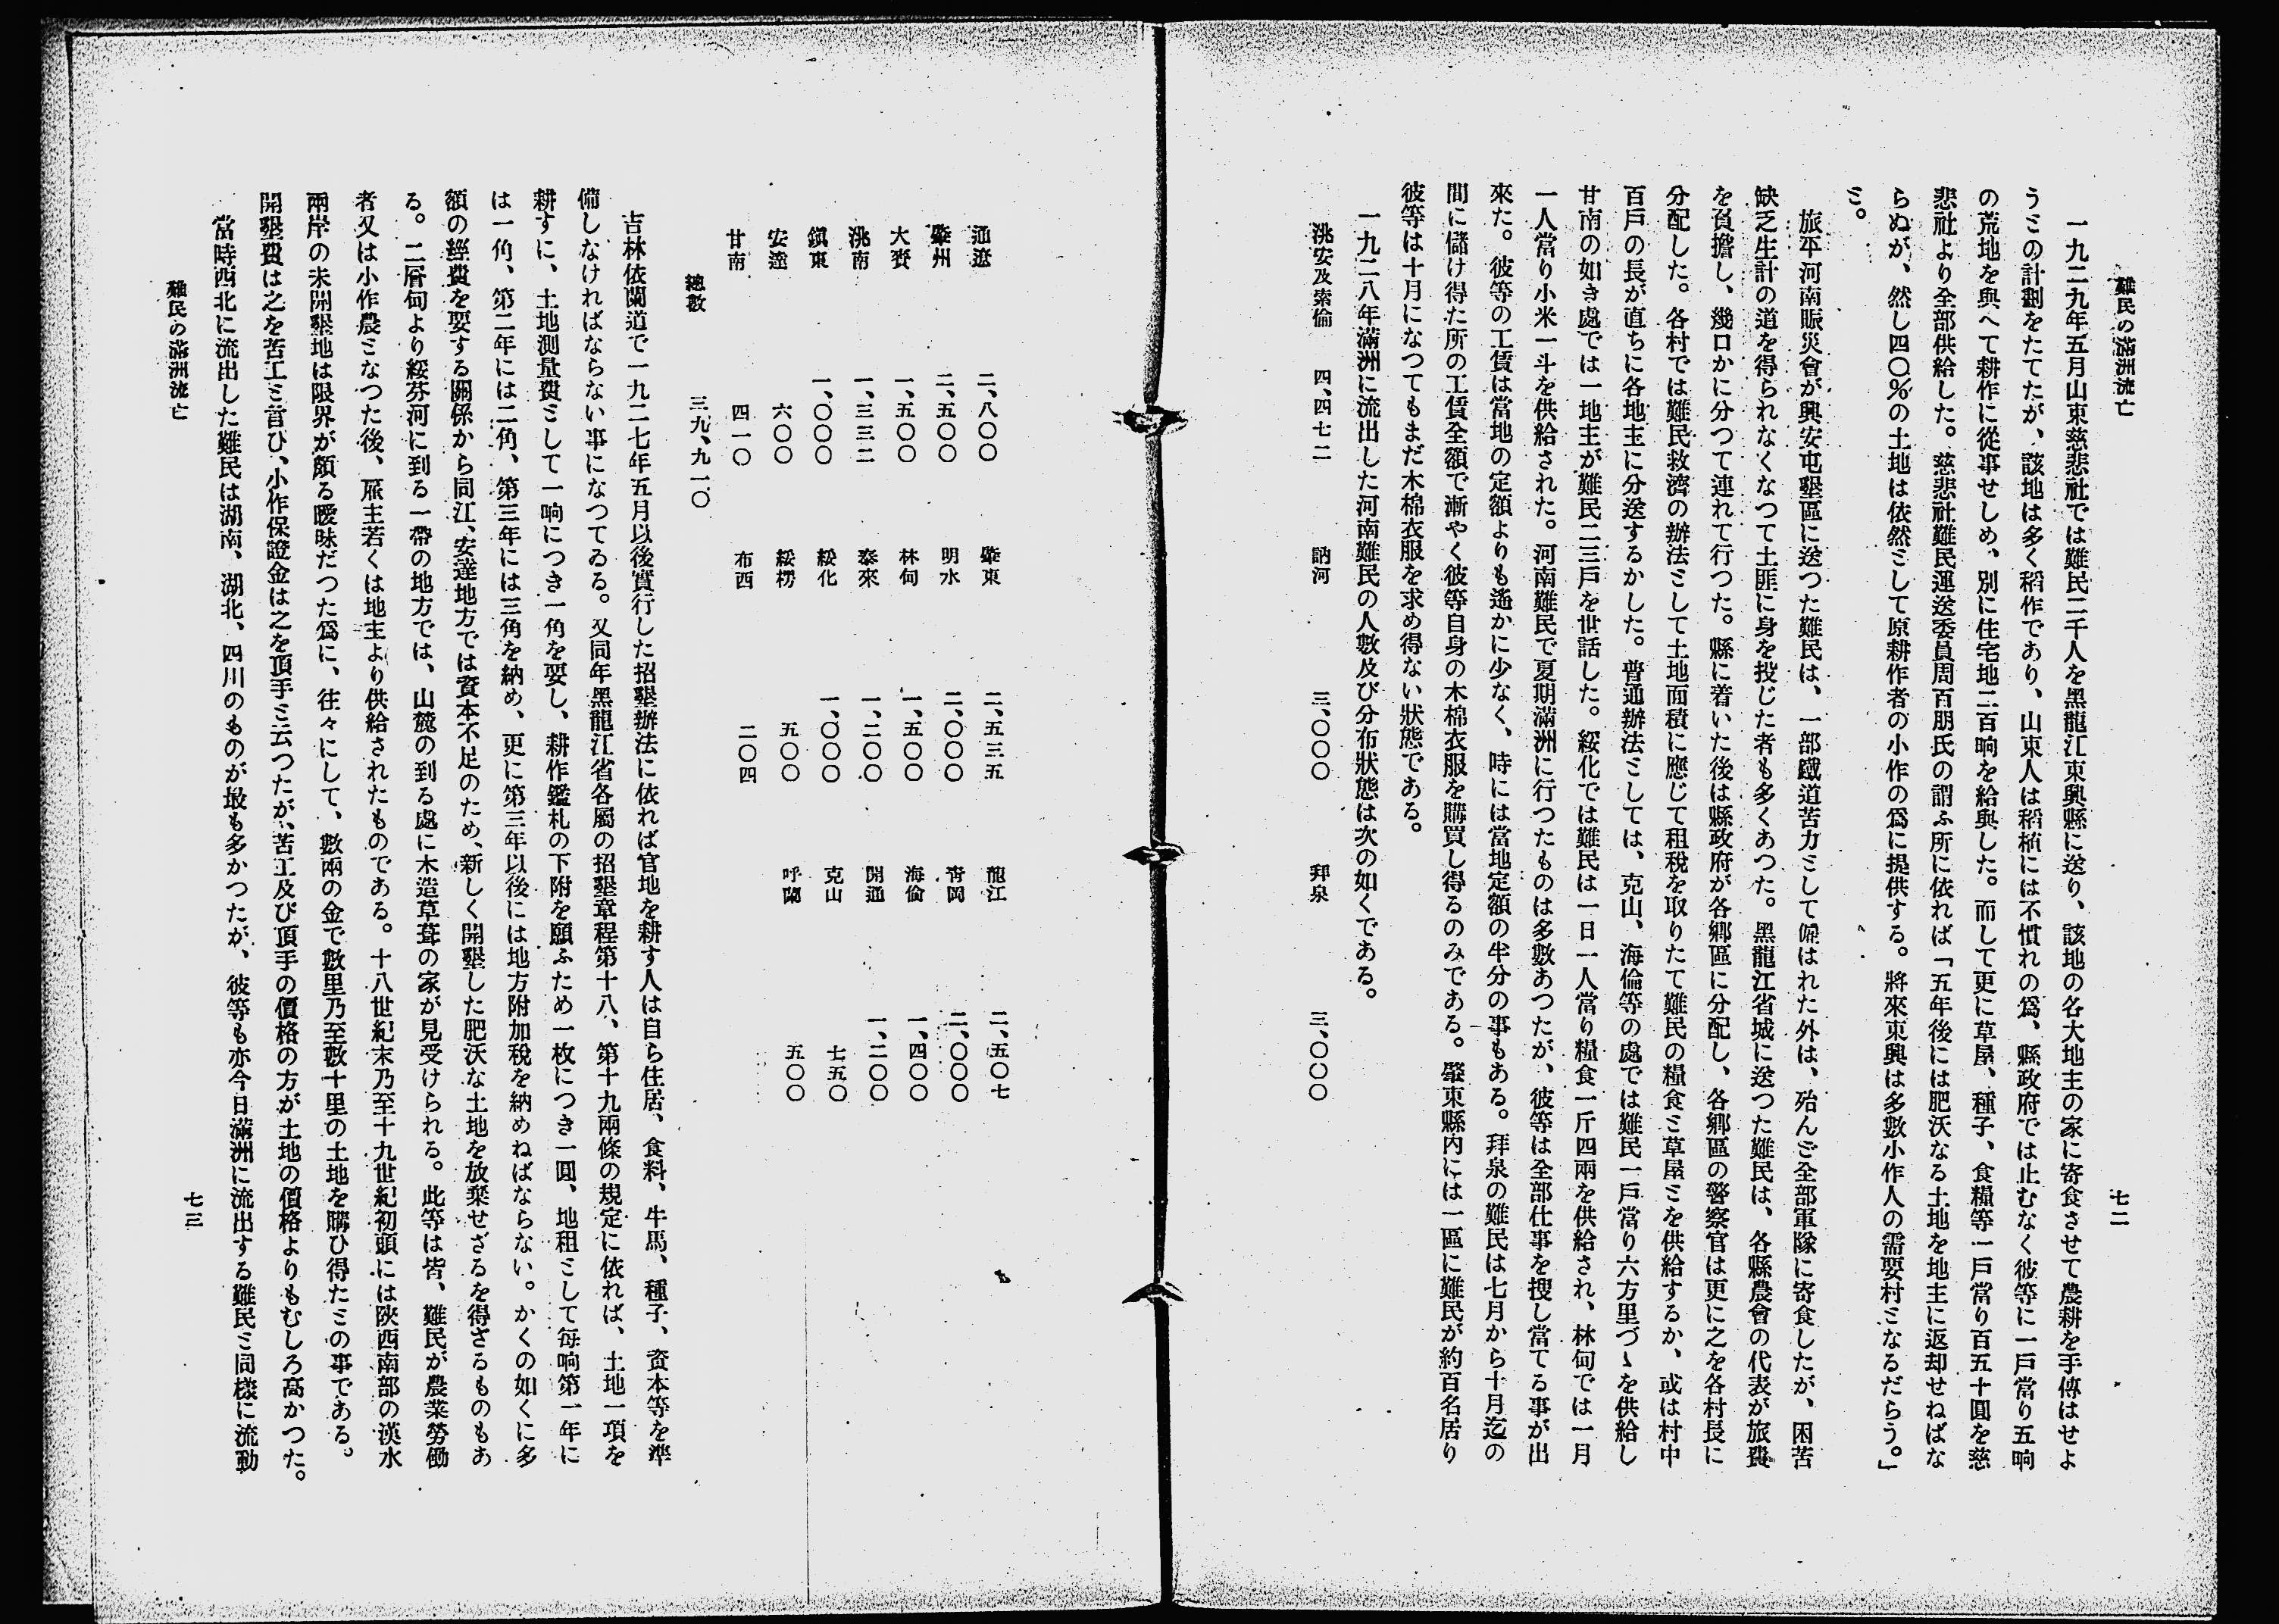 難民の滿洲流亡
七二
一九二九年五月山東慈悲社では難民二千人を黑龍江東興縣に送り、該地の各大地主の家に寄食させて農耕を手傳はせよ
うミの計劃をたてたが、該地は多く稻作であり、山東人は稻植には不慣れの爲、縣政府では止むなく彼等に一戸當り五晌
の荒地を與へて耕作に從事せしめ、別に住宅地二百晌を給與した。而して更に草屋、種子、食糧等一戸當り百五十圓を慈
悲社より全部供給した。慈悲社難民運送委員周百朋氏の謂ふ所に依れば「五年後には肥沃なる土地を地主に返却せねばな
らぬが、然し四〇％の土地は依然ミして原耕作者の小作の爲に提供する。將來東興は多數小作人の需要村ミなるだらう。」
ミ。
旅平河南賑災會が興安屯墾區に送つた難民は、一部鐵道苦力ミして傭はれた外は、殆んご全部軍隊に寄食したが、困苦
缺乏生計の道を得られなくなつて土匪に身を投じた者も多くあつた。黑龍江省城に送つた難民は、各縣農會の代表が旅費
を負擔し、幾口かに分つて連れて行つた。縣に着いた後は縣政府が各鄕區に分配し、各鄕區の警察官は更に之を各村長に
分配した。各村では難民救濟の辦法ミして土地面積に應じて租稅を取りたて難民の糧食ミ草屋ミを供給するか、或は村中
百戸の長が直ちに各地主に分送するかした。普通辦法ミしては、克山、海倫等の處では難民一戸當り六方里づゝを供給し
甘南の如き處では一地主が難民二三戸を世話した。綏化では難民は一日一人當り糧食一斤四兩を供給され、林甸では一月
一人當り小米一斗を供給された。河南難民で夏期滿洲に行つたものは多數あつたが、彼等は全部仕事を搜し當てる事が出
來た。彼等の工賃は當地の定額よりも遙かに少なく、時には當地定額の半分の事もある。拜泉の難民は七月から十月迄の
間に儲け得た所の工賃全額で漸やく彼等自身の木棉衣服を購買し得るのみである。肇東縣內には一區に難民が約百名居り
彼等は十月になつてもまだ木棉衣服を求め得ない狀態である。
一九二八年滿洲に流出した河南難民の人數及び分布狀態は次の如くである。
洮安及索倫　四、四七二　訥河　三、〇〇〇　拜泉　三、〇〇〇
通遼　二、八〇〇　肇東　二、五三五　龍江　二、五〇七
肇州　二、五〇〇　明水　二、〇〇〇　靑岡　二、〇〇〇
大賚　一、五〇〇　林甸　一、五〇〇　海倫　一、四〇〇
洮南　一、三三二　泰來　一、二〇〇　開通　一、二〇〇
鎭東　一、〇〇〇　綏化　一、〇〇〇　克山　七五〇
安達　六〇〇　綏楞　五〇〇　呼蘭　五〇〇
甘南　四一〇　布西　二〇四
總數　三九、九一〇
吉林依蘭道で一九二七年五月以後實行した招墾辦法に依れば官地を耕す人は自ら住居、食料、牛馬、種子、資本等を準
備しなければならない事になつてゐる。又同年黑龍江省各屬の招墾章程第十八、第十九兩條の規定に依れば、土地一項を
耕すに、土地測量費ミして一晌につき一角を要し、耕作鑑札の下附を願ふため一枚につき一圓、地租ミして每晌第一年に
は一角、第二年には二角、第三年には三角を納め、更に第三年以後には地方附加稅を納めねばならない。かくの如くに多
額の經費を要する關係から同江、安達地方では資本不足のため、新しく開墾した肥沃な土地を放棄せざるを得さるものもあ
る。二層甸より綏芬河に到る一帶の地方では、山麓の到る處に木造草葺の家が見受けられる。此等は皆、難民が農業勞働
者又は小作農ミなつた後、雇主若くは地主より供給されたものである。十八世紀末乃至十九世紀初頭には陝西南部の漢水
兩岸の未開墾地は限界が頗る曖昧だつた爲に、往々にして、數兩の金で數里乃至數十里の土地を購ひ得たミの事である。
開墾費は之を苦工ミ言ひ、小作保證金は之を頂手ミ云つたが、苦工及び頂手の價格の方が土地の價格よりもむしろ高かつた。
當時西北に流出した難民は湖南、湖北、四川のものが最も多かつたが、彼等も亦今日滿洲に流出する難民ミ同樣に流動
難民の滿洲流亡
七三